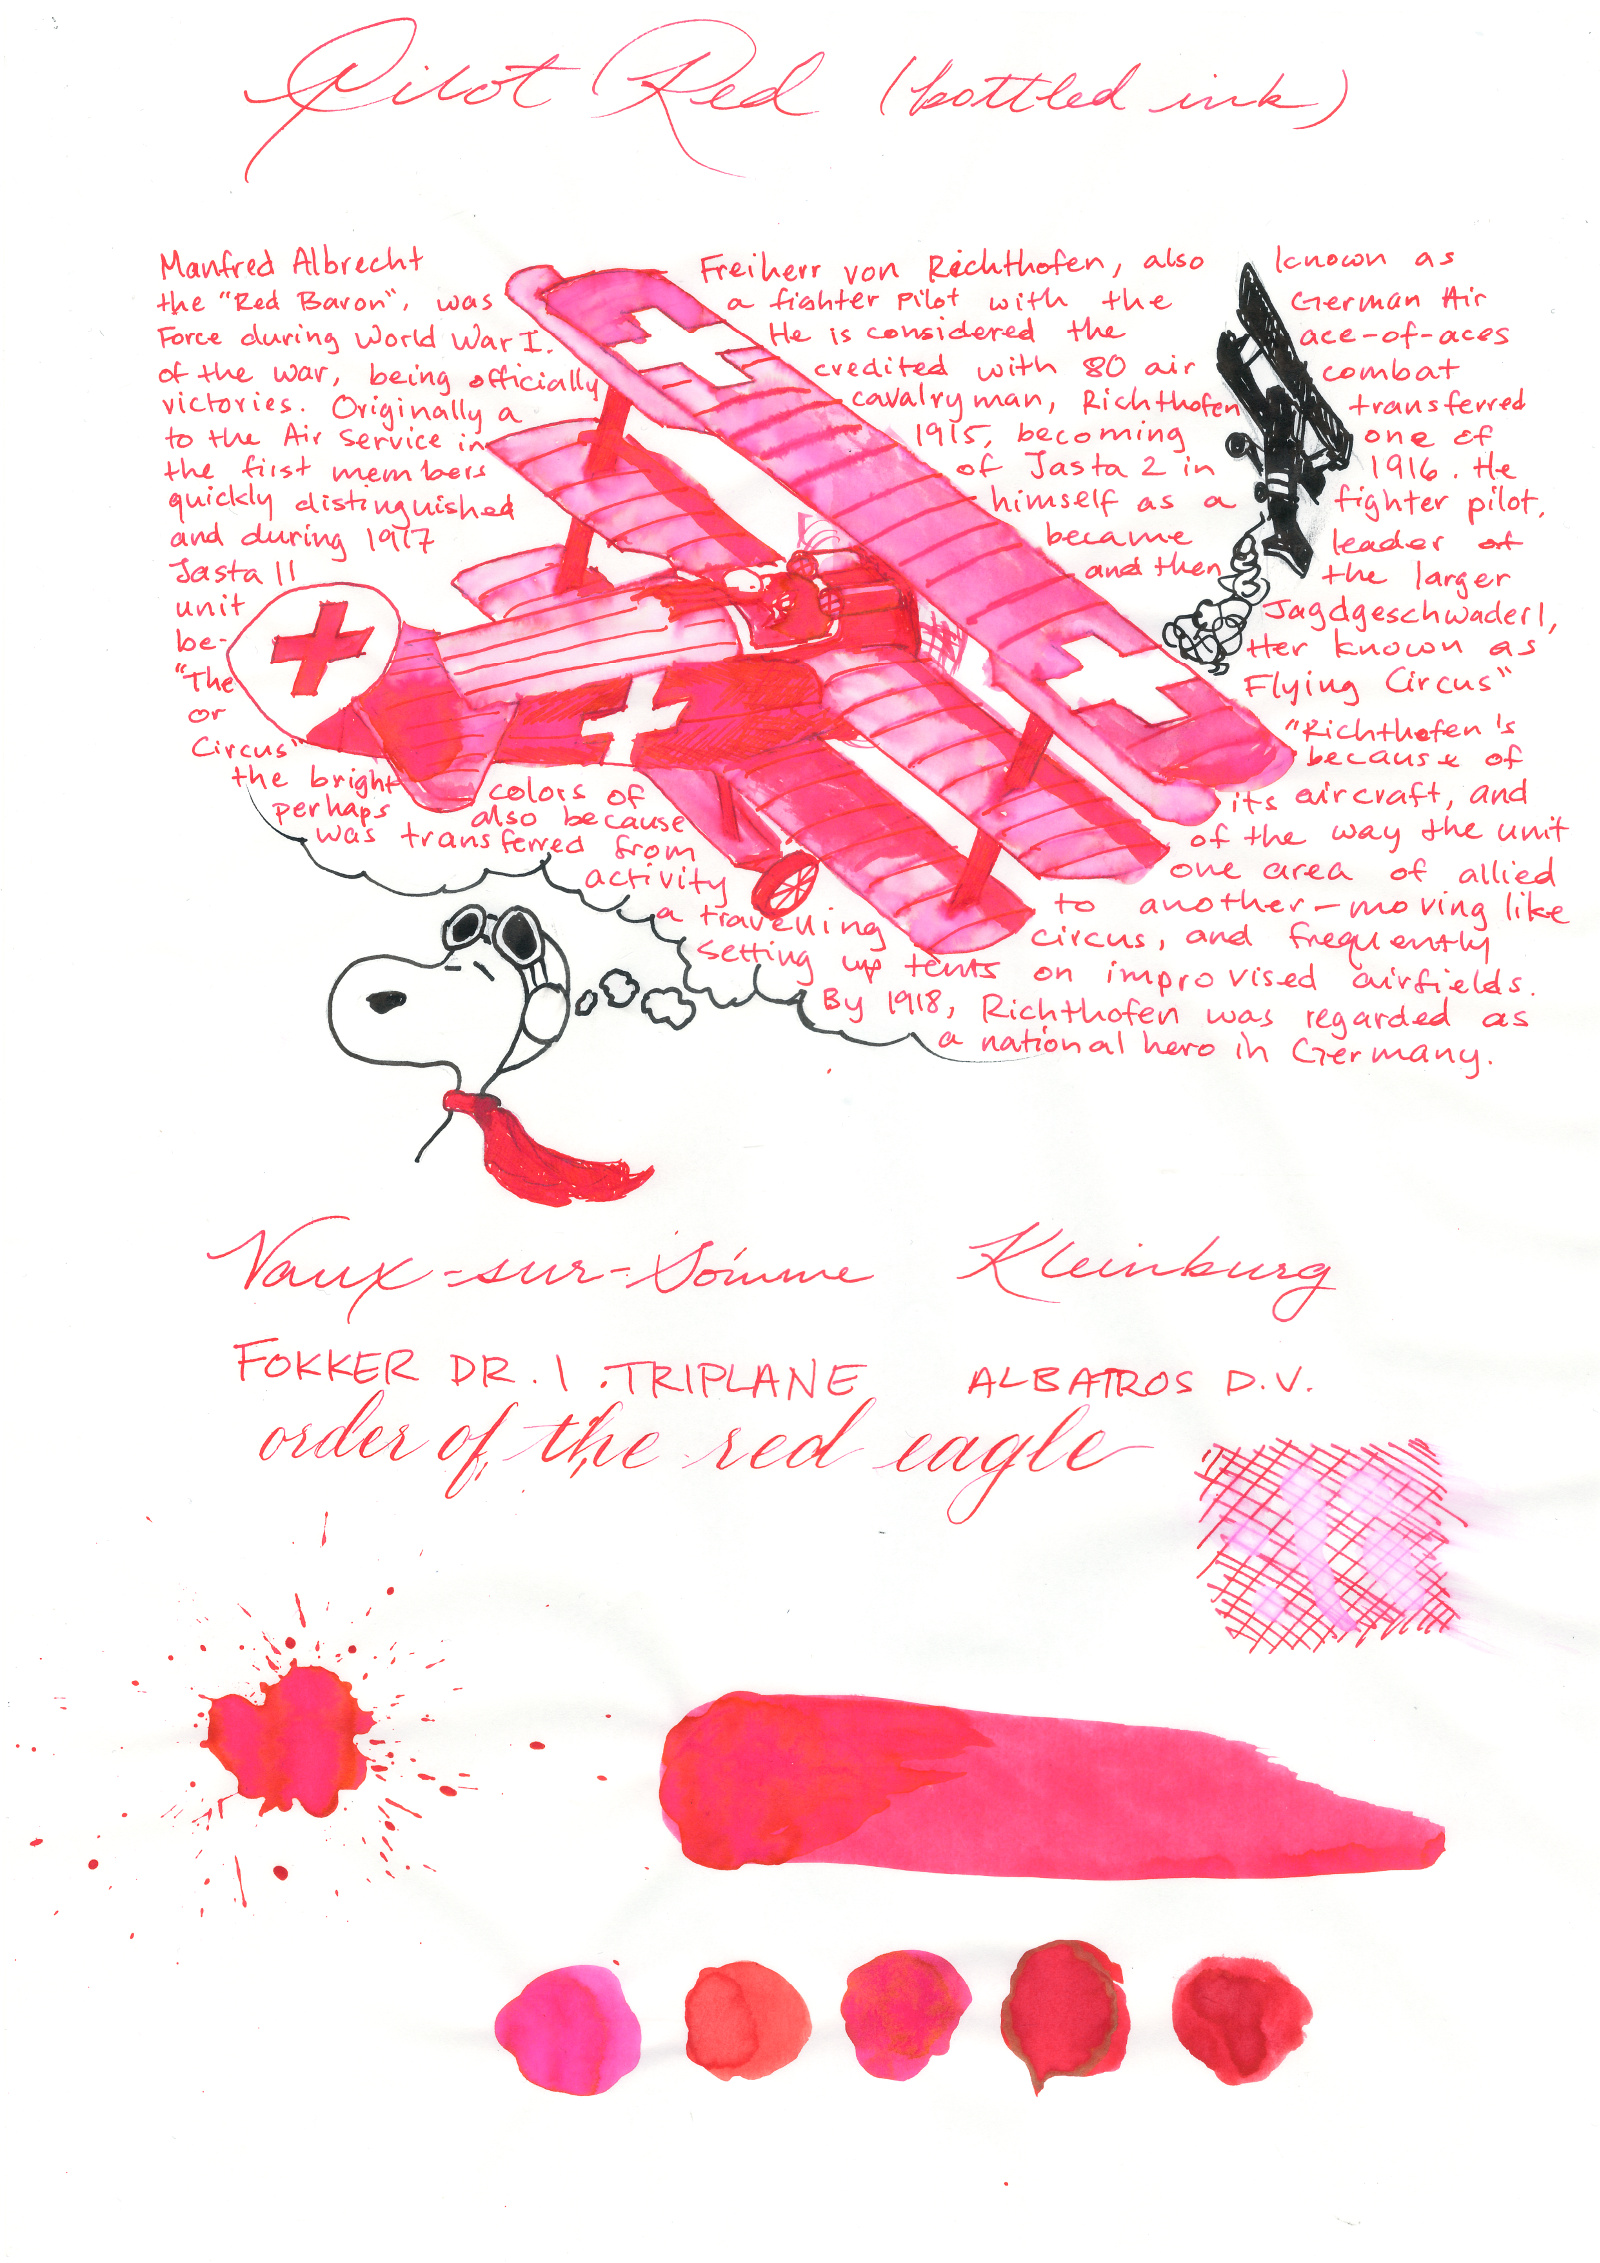 Pilot Red (bottled ink)
Manfred Albrecht Freiherr von Richthofen, also known as
the "Red Baron", was a fighter pilot with the German Air
Force during World War I. He is considered the ace-of-aces
of the war, being officially credited with 80 air combat
victories. Originally a cavalryman, Richthofen transferred
to the Air Service in 1915, becoming one of
the first members of Jasta 2 in 1916. He
quickly distinguished himself as a fighter pilot,
and during 1917 became leader of
Jasta 11 and then the larger
unit Jagdgeschwader 1,
be- tter known as
"The Flying Circus"
or "Richthofen's
Circus" because of
the bright colors of its aircraft, and
perhaps also because of the way the unit
was transferred from one area of allied
activity to another - moving like
a travelling circus, and frequently
setting up tents on improvised airfields.
By 1918, Richthofen was regarded as
a national hero in Germany.
Vaux-sur-Somme Kleinburg
FOKKER DR. I TRIPLANE ALBATROS D.V.
order of the red eagle